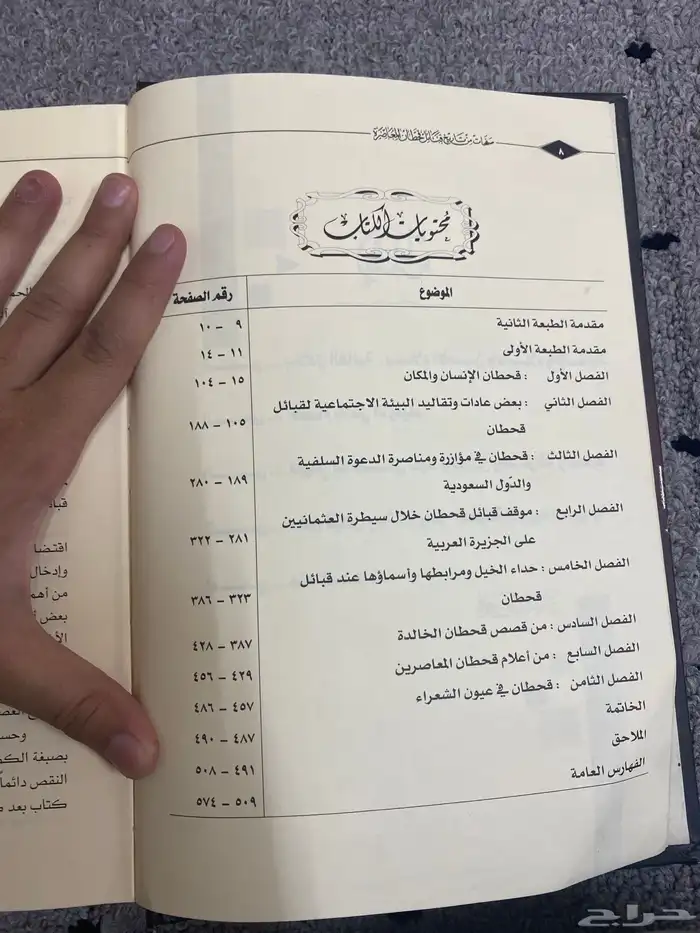 صفحات من تاريخ قبائل قحطان المعاصرة
٨
محتويات الكتاب
الموضوع رقم الصفحة
مقدمة الطبعة الثانية ٩ – ١٠
مقدمة الطبعة الأولى ١١ – ١٤
الفصل الأول : قحطان الإنسان والمكان ١٥ – ١٠٤
الفصل الثاني : بعض عادات وتقاليد البيئة الاجتماعية لقبائل
قحطان ١٠٥ – ١٨٨
الفصل الثالث : قحطان في مؤازرة ومناصرة الدعوة السلفية
والدّول السعودية ١٨٩ – ٢٨٠
الفصل الرابع : موقف قبائل قحطان خلال سيطرة العثمانيين
على الجزيرة العربية ٢٨١ – ٣٢٢
الفصل الخامس : حداء الخيل ومرابطها وأسماؤها عند قبائل
قحطان ٣٢٣ – ٣٨٦
الفصل السادس : من قصص قحطان الخالدة ٣٨٧ – ٤٢٨
الفصل السابع : من أعلام قحطان المعاصرين ٤٢٩ – ٤٥٦
الفصل الثامن : قحطان في عيون الشعراء ٤٥٧ – ٤٨٦
الخاتمة ٤٨٧ – ٤٩٠
الملاحق ٤٩١ – ٥٠٨
الفهارس العامة ٥٠٩ – ٥٧٤
اقتضا
وإدخال
من أهم
بعض
وحس
بصبغة الك
النقص دائماً
كتاب بعد
حراج